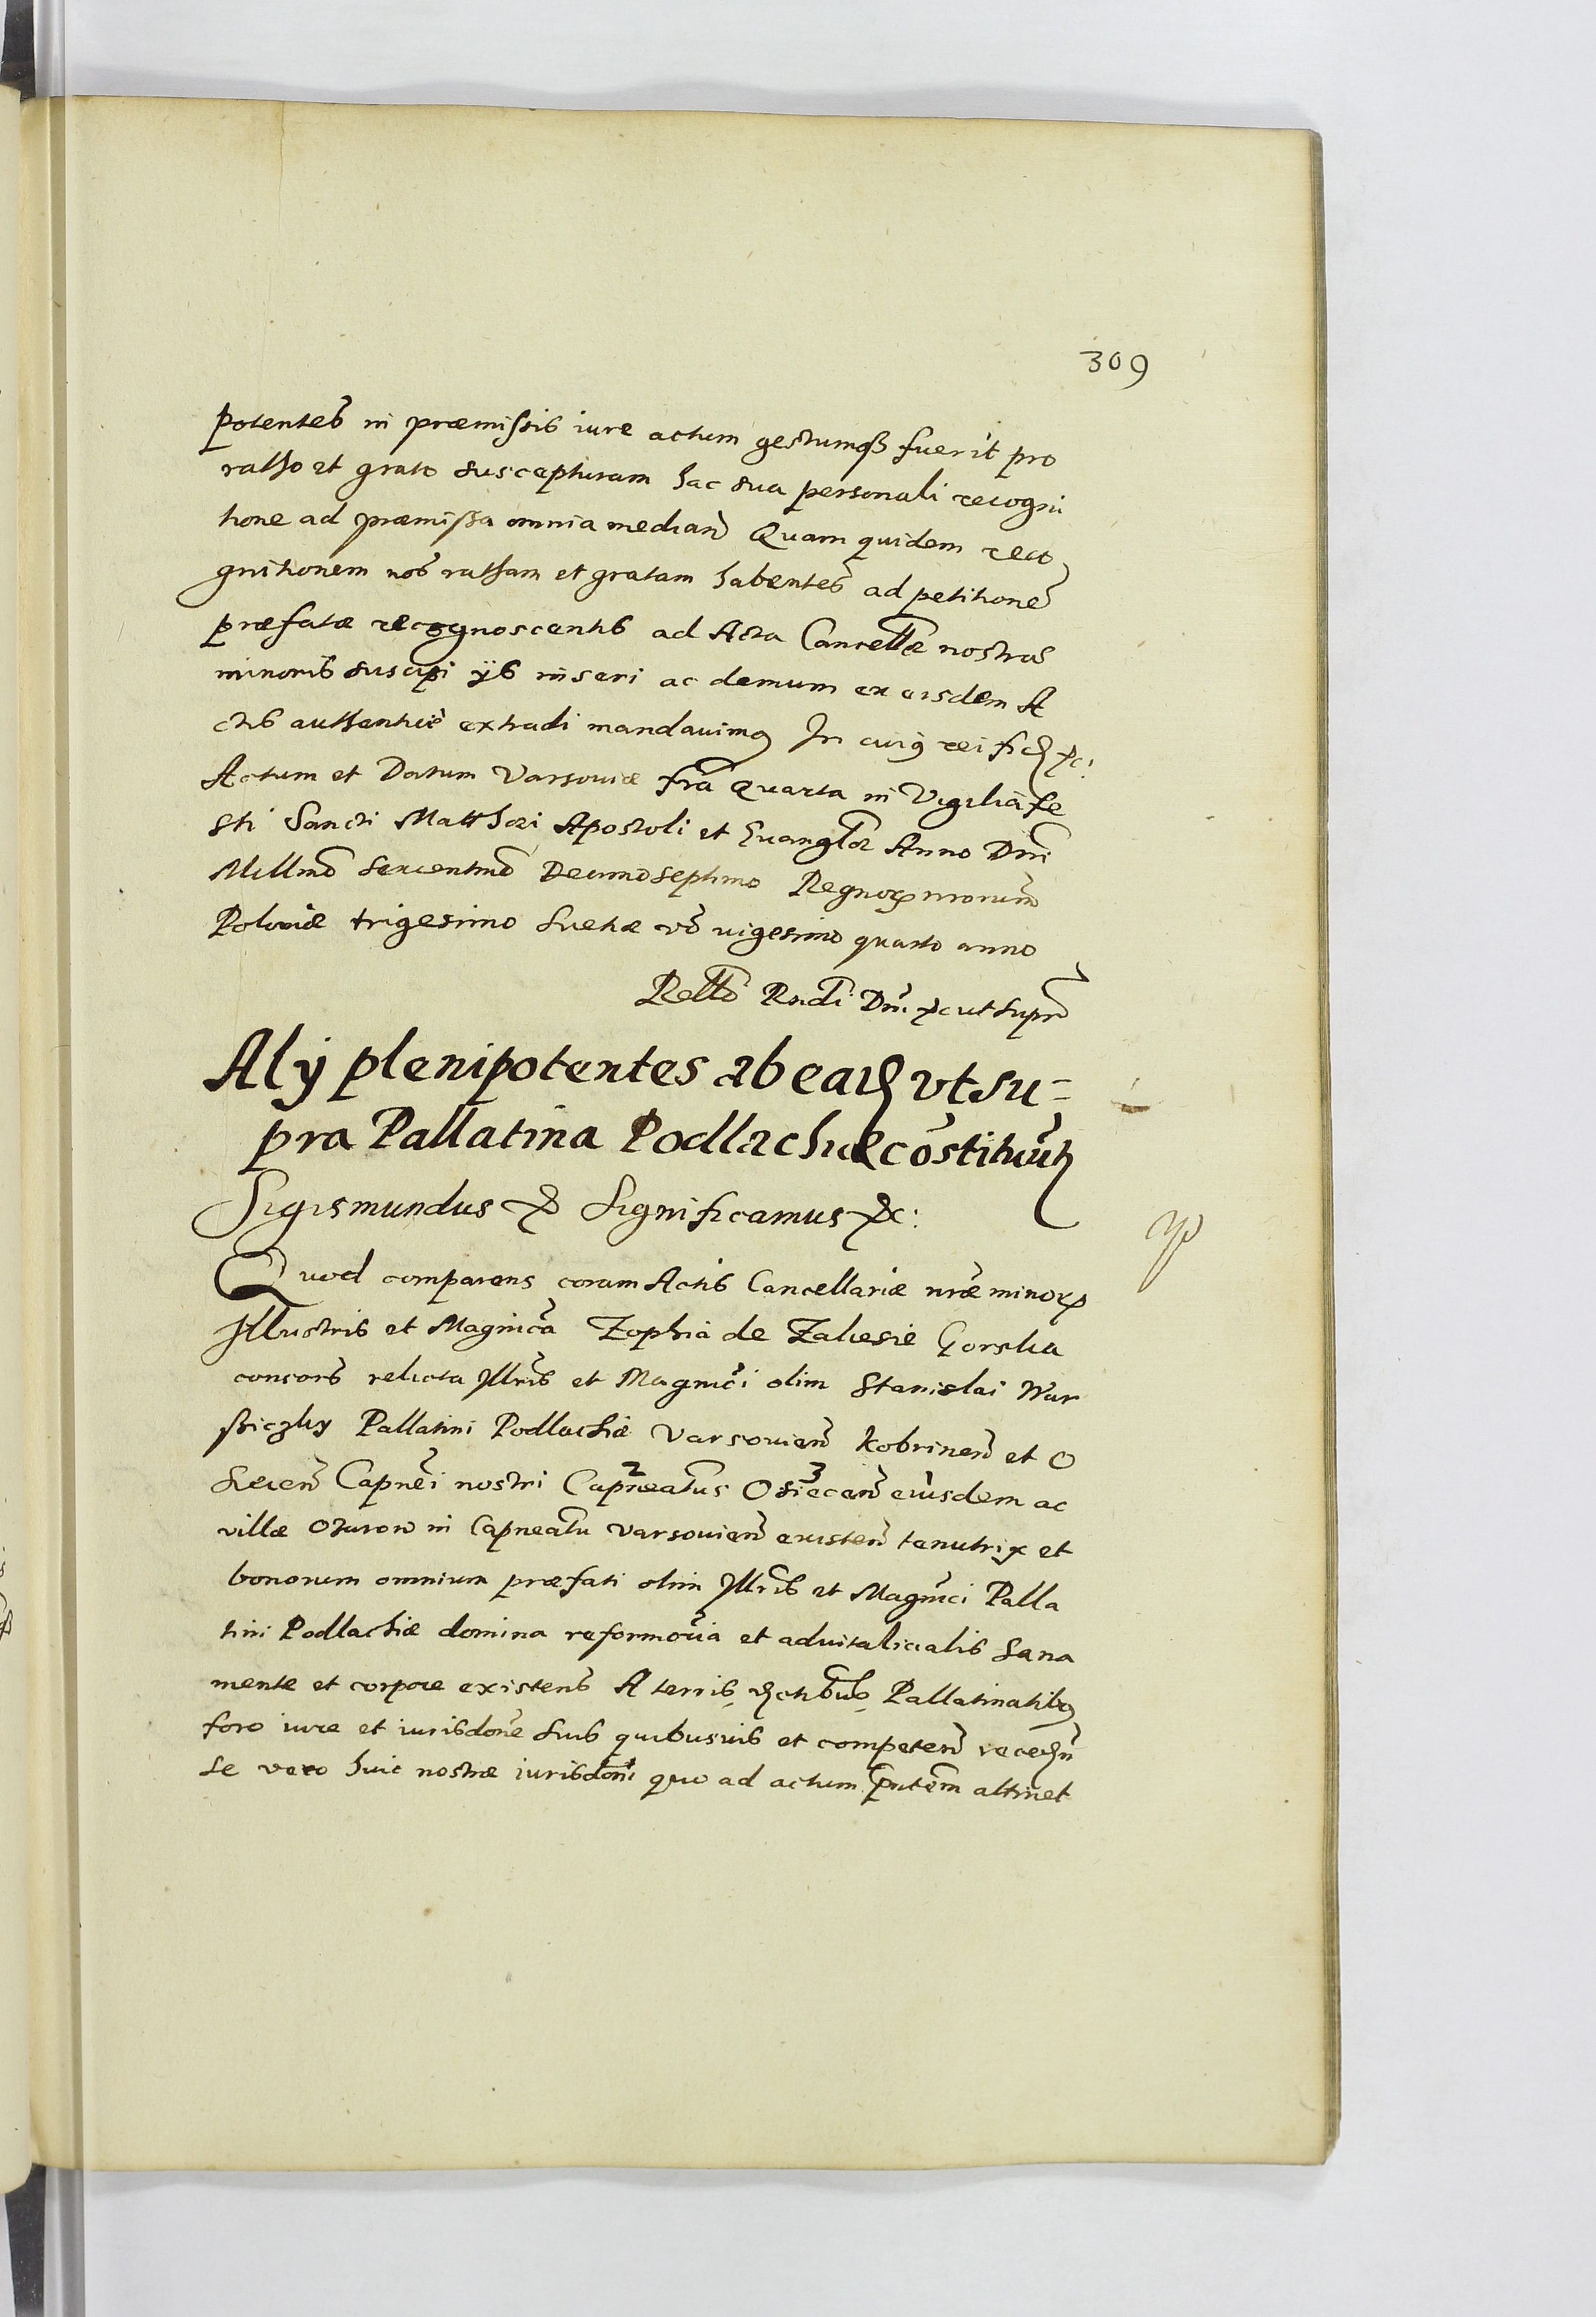 309
potentes in præmissis iure actum gestumq3 fuerit pro
ratho et grato suscepturam hac sua personali recogni
tione ad præmissa omnia median̄ Quam quidem reco
gnitionem nos ratham et gratam habentes ad petitionē
præfatæ recognoscentis ad Acta Cancellæ nostras
minoris suscipi ijs inseri ac demum ex eisdem A
ctis authenticè extradi mandauimus In cuius rei fid &c:
Actum et Datum Varsouiæ fra Quarta in Vigilia fe
sti Sancti Matthæi Apostoli et Euanglæ Anno Dni
Millmo sexcentmo Decimoseptimo Regnorum nrorum
Poloniæ trigesimo Suetiæ vō uigesimo quarto anno
Rello Rndi Dni &c ut supra
Alij plenipotentes ab ead vt su=
pra Pallatina Podlachiæ cōstituūt
Sigismundus & Significamus &c:
Quod comparens coram Actis Cancellariæ nræ minorum
Illustris et Magnica Zophia de Zalesie Gorska
consors relicta Illris et Magnici olim Stanislai War
ssiczky Pallatini Podlachiæ Varsouien̄ Kobrinen̄ et O
secen̄ Capnei nostri Capneatus 2 Osiecen̄ 3 eiusdem ac
villæ Ozarow in Capneatu Varsouien̄ existen̄ tenutrix et
bonorum omnium præfati olim Illris et Magnici Palla
tini Podlachiæ domina reformoria et aduitalicialis Sana
mente et corpore existens A terris dictibus Pallatinatibus
foro iure et iurisdone suis quibusuis et competen̄ recedn̄
se vero huic nostræ iurisdoni quo ad actum pntem attinet